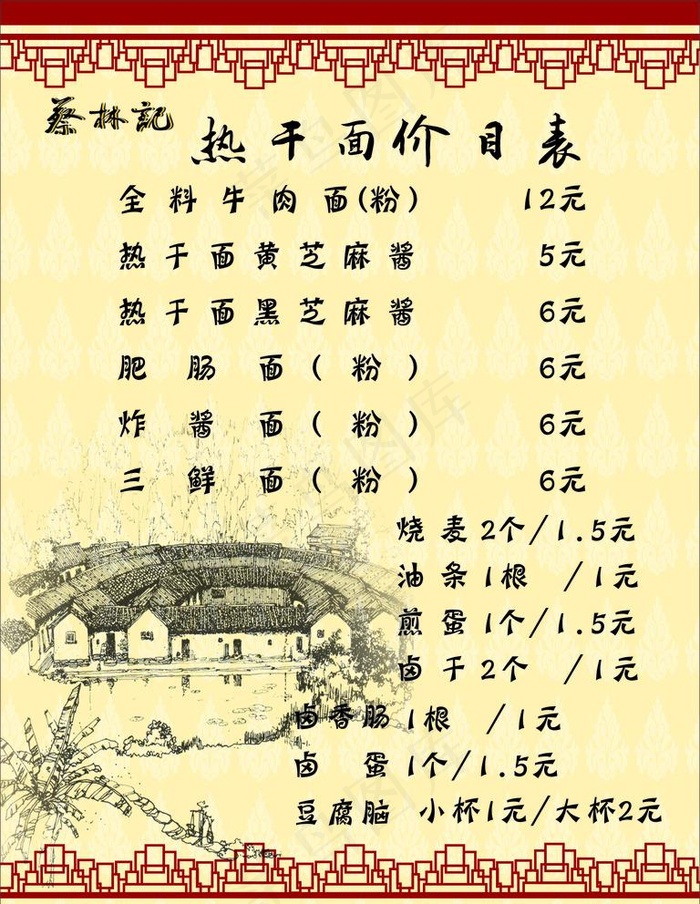 蔡林記
热干面价目表
全料牛肉面(粉) 12元
热干面黄芝麻酱 5元
热干面黑芝麻酱 6元
肥肠面(粉) 6元
炸酱面(粉) 6元
三鲜面(粉) 6元
烧麦2个/1.5元
油条1根 /1元
煎蛋1个/1.5元
卤干2个 /1元
卤香肠1根 /1元
卤 蛋1个/1.5元
豆腐脑 小杯1元/大杯2元